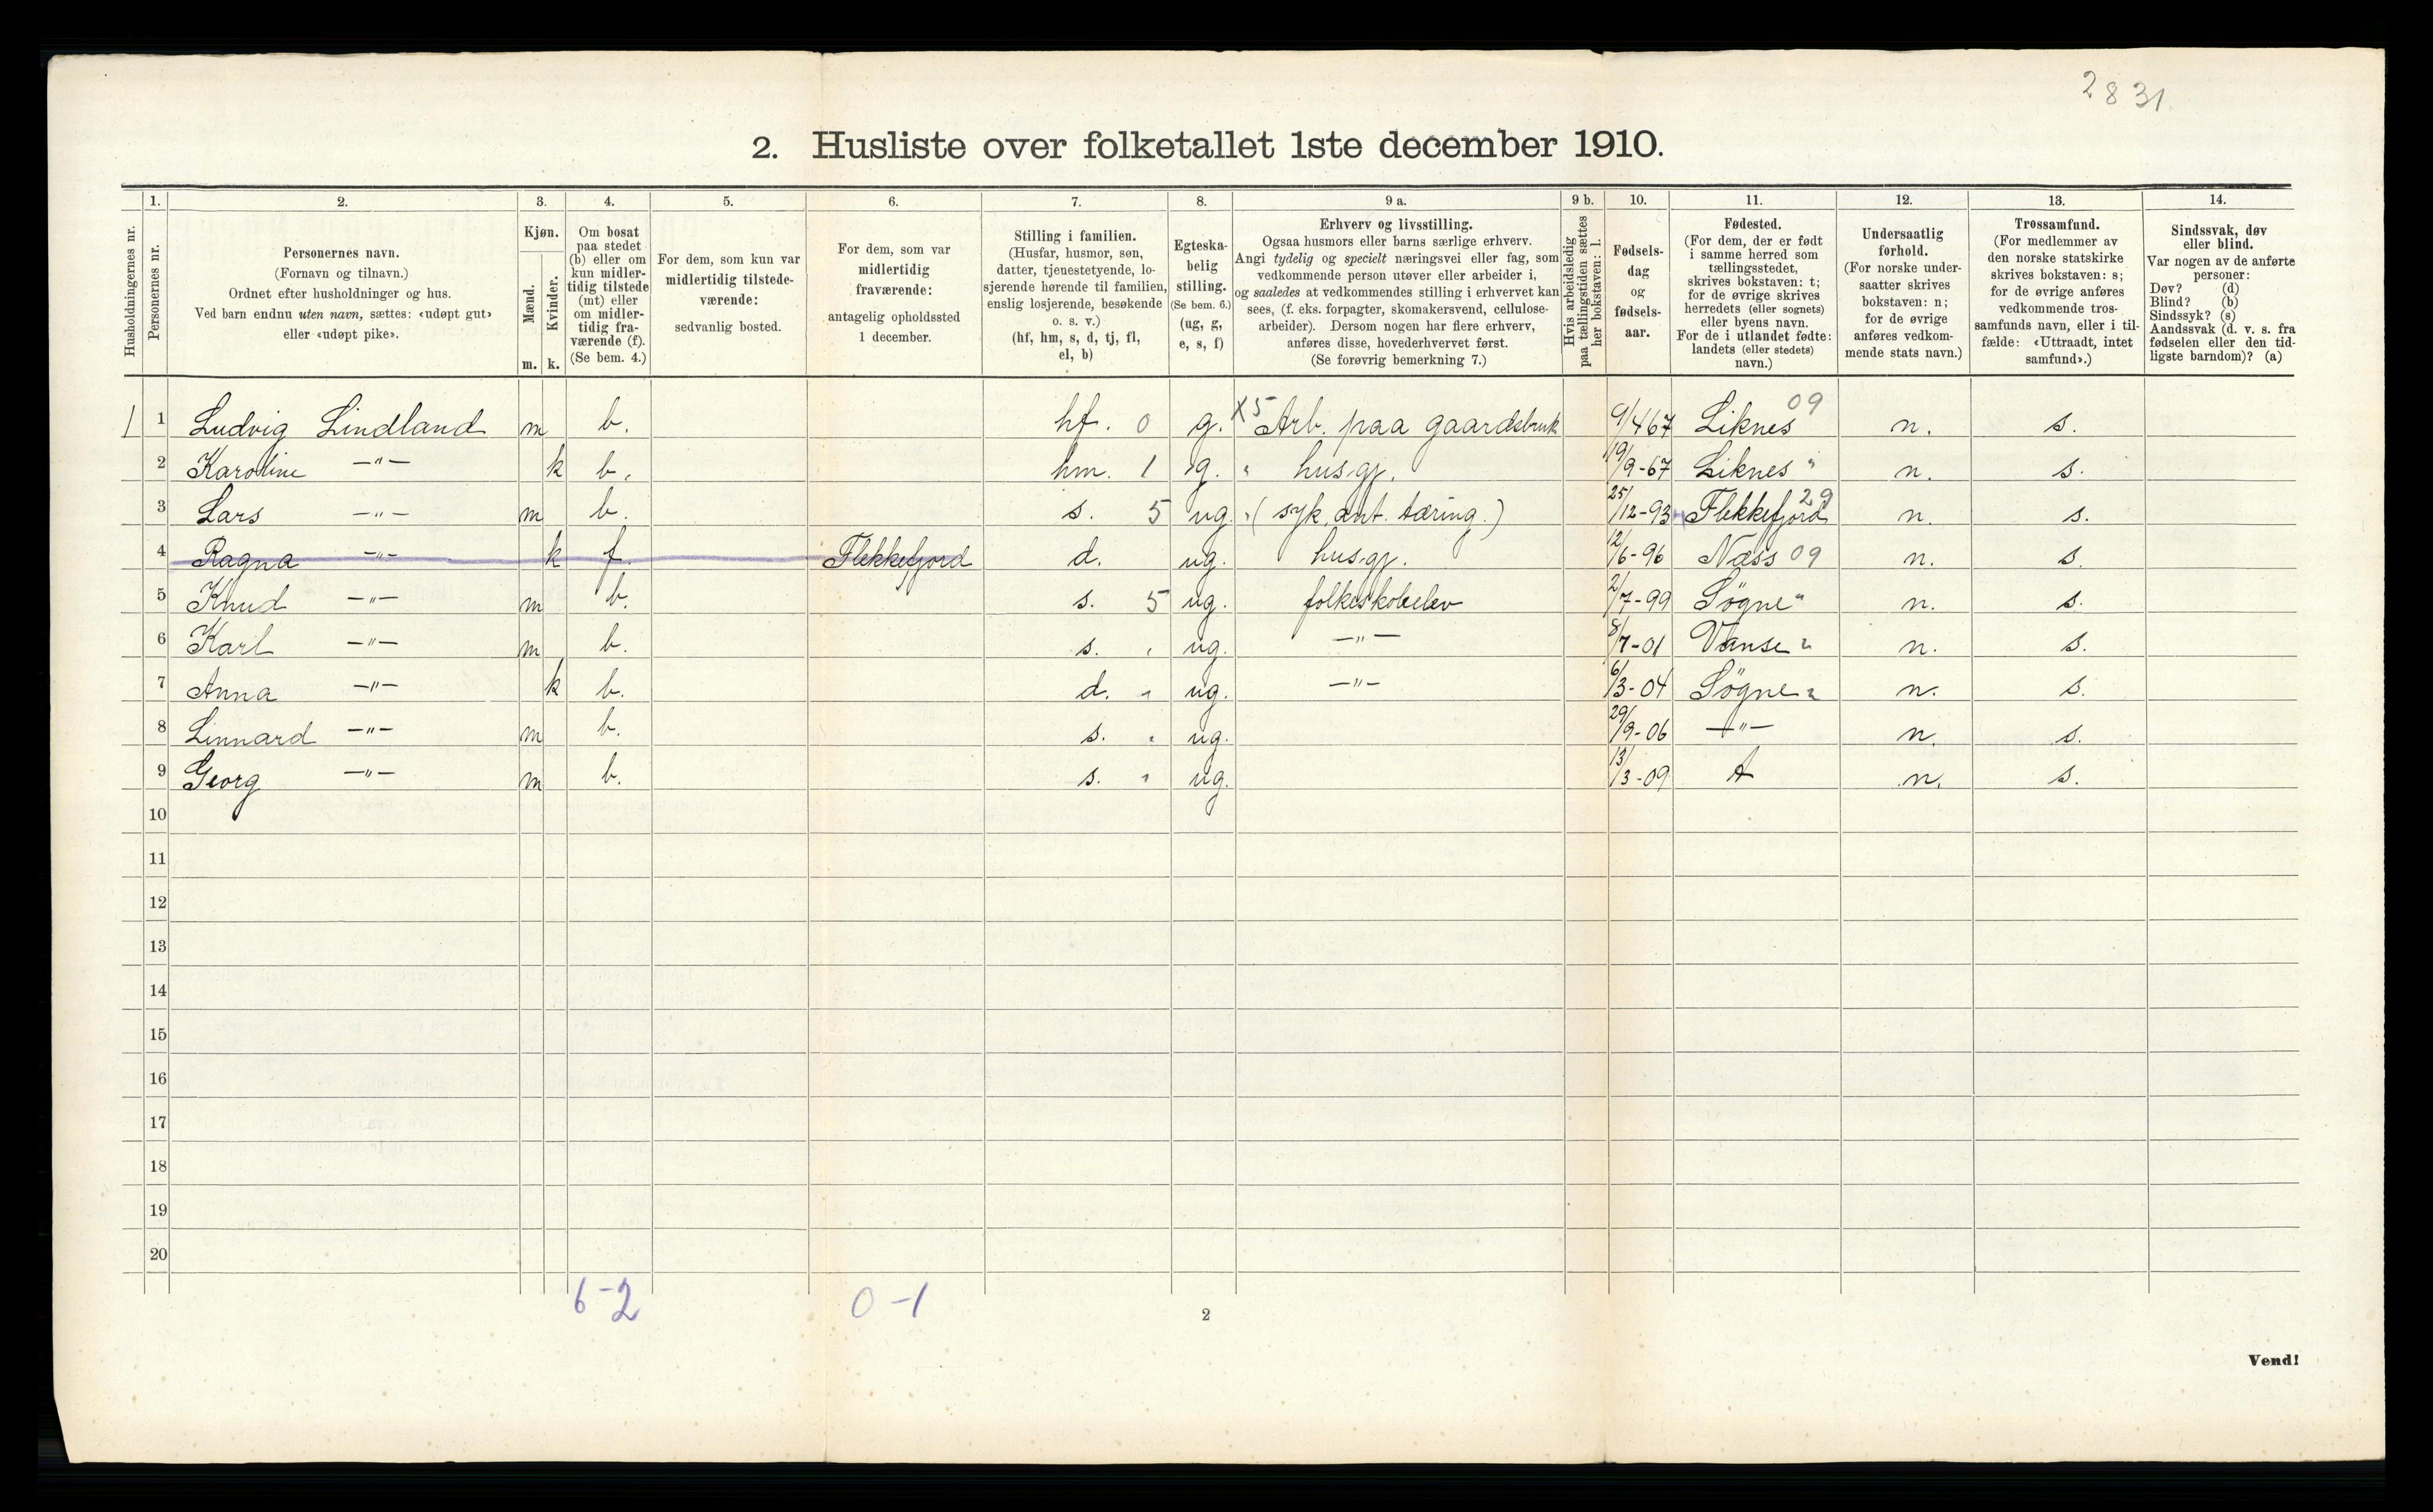 2831
2. Husliste over folketallet 1ste december 1910.
Husholdningernes nr.
1. Personernes nr.
2. Personernes navn. (Fornavn og tilnavn.) Ordnet efter husholdninger og hus. Ved barn endnu uten navn, sættes: «udøpt gut» eller «udøpt pike».
3. Kjøn. Mænd. m. Kvinder. k.
4. Om bosat paa stedet (b) eller om kun midlertidig tilstede (mt) eller om midlertidig fraværende (f). (Se bem. 4.)
5. For dem, som kun var midlertidig tilstedeværende: sedvanlig bosted.
6. For dem, som var midlertidig fraværende: antagelig opholdssted 1 december.
7. Stilling i familien. (Husfar, husmor, søn, datter, tjenestetyende, losjerende hørende til familien, enslig losjerende, besøkende o. s. v.) (hf, hm, s, d, tj, fl, el, b)
8. Egteskabelig stilling. (Se bem. 6.) (ug, g, e, s, f)
9 a. Erhverv og livsstilling. Ogsaa husmors eller barns særlige erhverv. Angi tydelig og specielt næringsvei eller fag, som vedkommende person utøver eller arbeider i, og saaledes at vedkommendes stilling i erhvervet kan sees, (f. eks. forpagter, skomakersvend, cellulosearbeider). Dersom nogen har flere erhverv, anføres disse, hovederhvervet først. (Se forøvrig bemerkning 7.)
9 b. Hvis arbeidsledig paa tællingstiden sættes her bokstaven: l.
10. Fødselsdag og fødselsaar.
11. Fødested. (For dem, der er født i samme herred som tællingsstedet, skrives bokstaven: t; for de øvrige skrives herredets (eller sognets) eller byens navn. For de i utlandet fødte: landets (eller stedets) navn.)
12. Undersaatlig forhold. (For norske undersaatter skrives bokstaven: n; for de øvrige anføres vedkommende stats navn.)
13. Trossamfund. (For medlemmer av den norske statskirke skrives bokstaven: s; for de øvrige anføres vedkommende trossamfunds navn, eller i tilfælde: «Uttraadt, intet samfund».)
14. Sindssvak, døv eller blind. Var nogen av de anførte personer: Døv? (d) Blind? (b) Sindssyk? (s) Aandssvak (d. v. s. fra fødselen eller den tidligste barndom)? (a)
1 1 Ludvig Lindland m b. hf. 0 g. X5 Arb. paa gaardsbruk 9/4 67 Liknes 09 n. s.
2 Karoline —"— k b. hm. 1 g. " husgj. 19/9-67 Liknes " n. s.
3 Lars —"— m b. s. 5 ug. " (syk, ant. tæring.) 25/12-93 Flekkefjord 29 n. s.
4 Ragna —"— k f. Flekkefjord d. ug. husgj. 12/6-96 Næss 09 n. s.
5 Knud —"— m b. s. 5 ug. folkeskoleelev 2/7-99 Søgne " n. s.
6 Karl —"— m b. s. " ug. —"— 8/7-01 Vanse " n. s.
7 Anna —"— k b. d. " ug. —"— 6/3-04 Søgne " n. s.
8 Linnard —"— m b. s. " ug. 29/9-06 —"— n. s.
9 Georg —"— m b. s. " ug. 13/3-09 t n. s.
10
11
12
13
14
15
16
17
18
19
20
6-2 0-1
2
Vend!